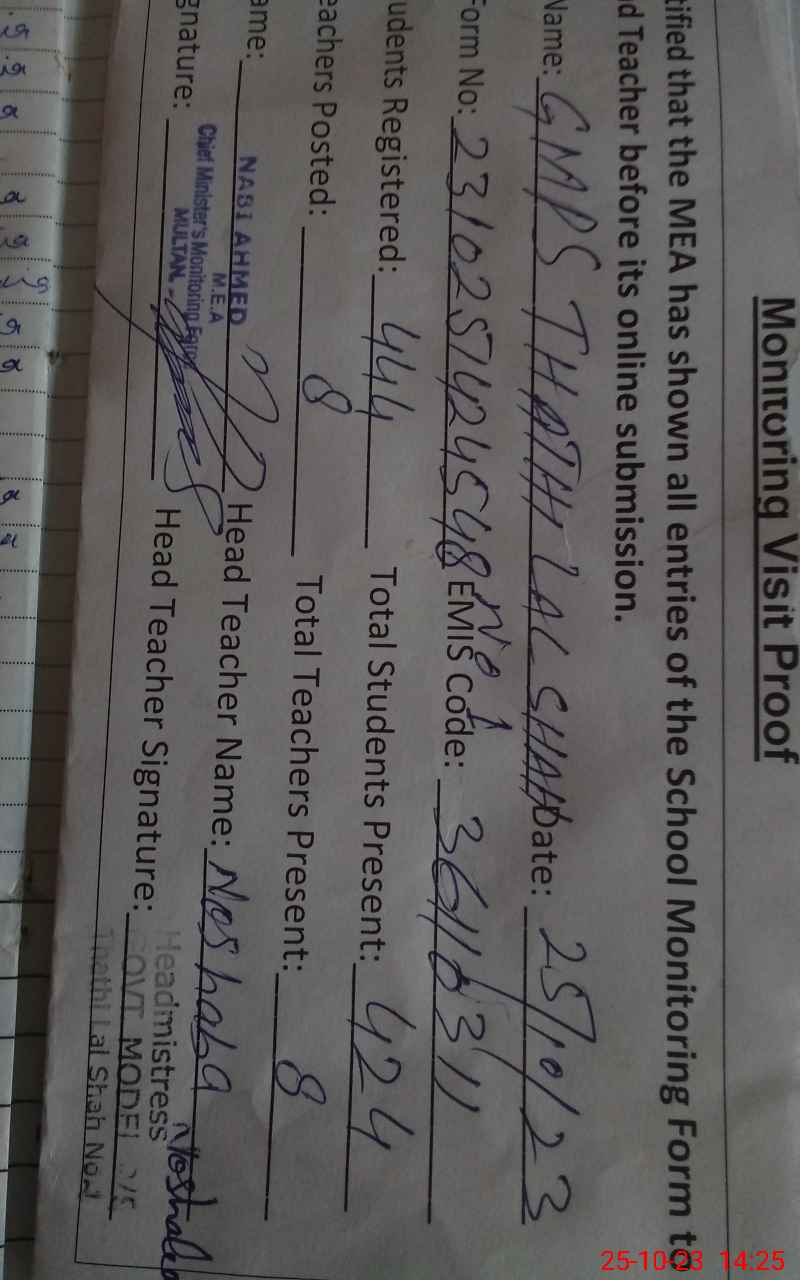 Monitoring Visit Proof
tified that the MEA has shown all entries of the School Monitoring Form to
d Teacher before its online submission.
Name: GMPS THATHI LAL SHAH Date: 25/10/23
No 1
Form No: 2310257424548 EMIS Code: 36110311
udents Registered: 444 Total Students Present: 424
eachers Posted: 8 Total Teachers Present: 8
ame: NABI AHMED Head Teacher Name: Noshaba
M.E.A
Chief Minister's Monitoring Force
MULTAN
gnature: Head Teacher Signature: Noshaba
Headmistress
GOVT MODEL P/S
Thathi Lal Shah No.1
25-10-23 14:25